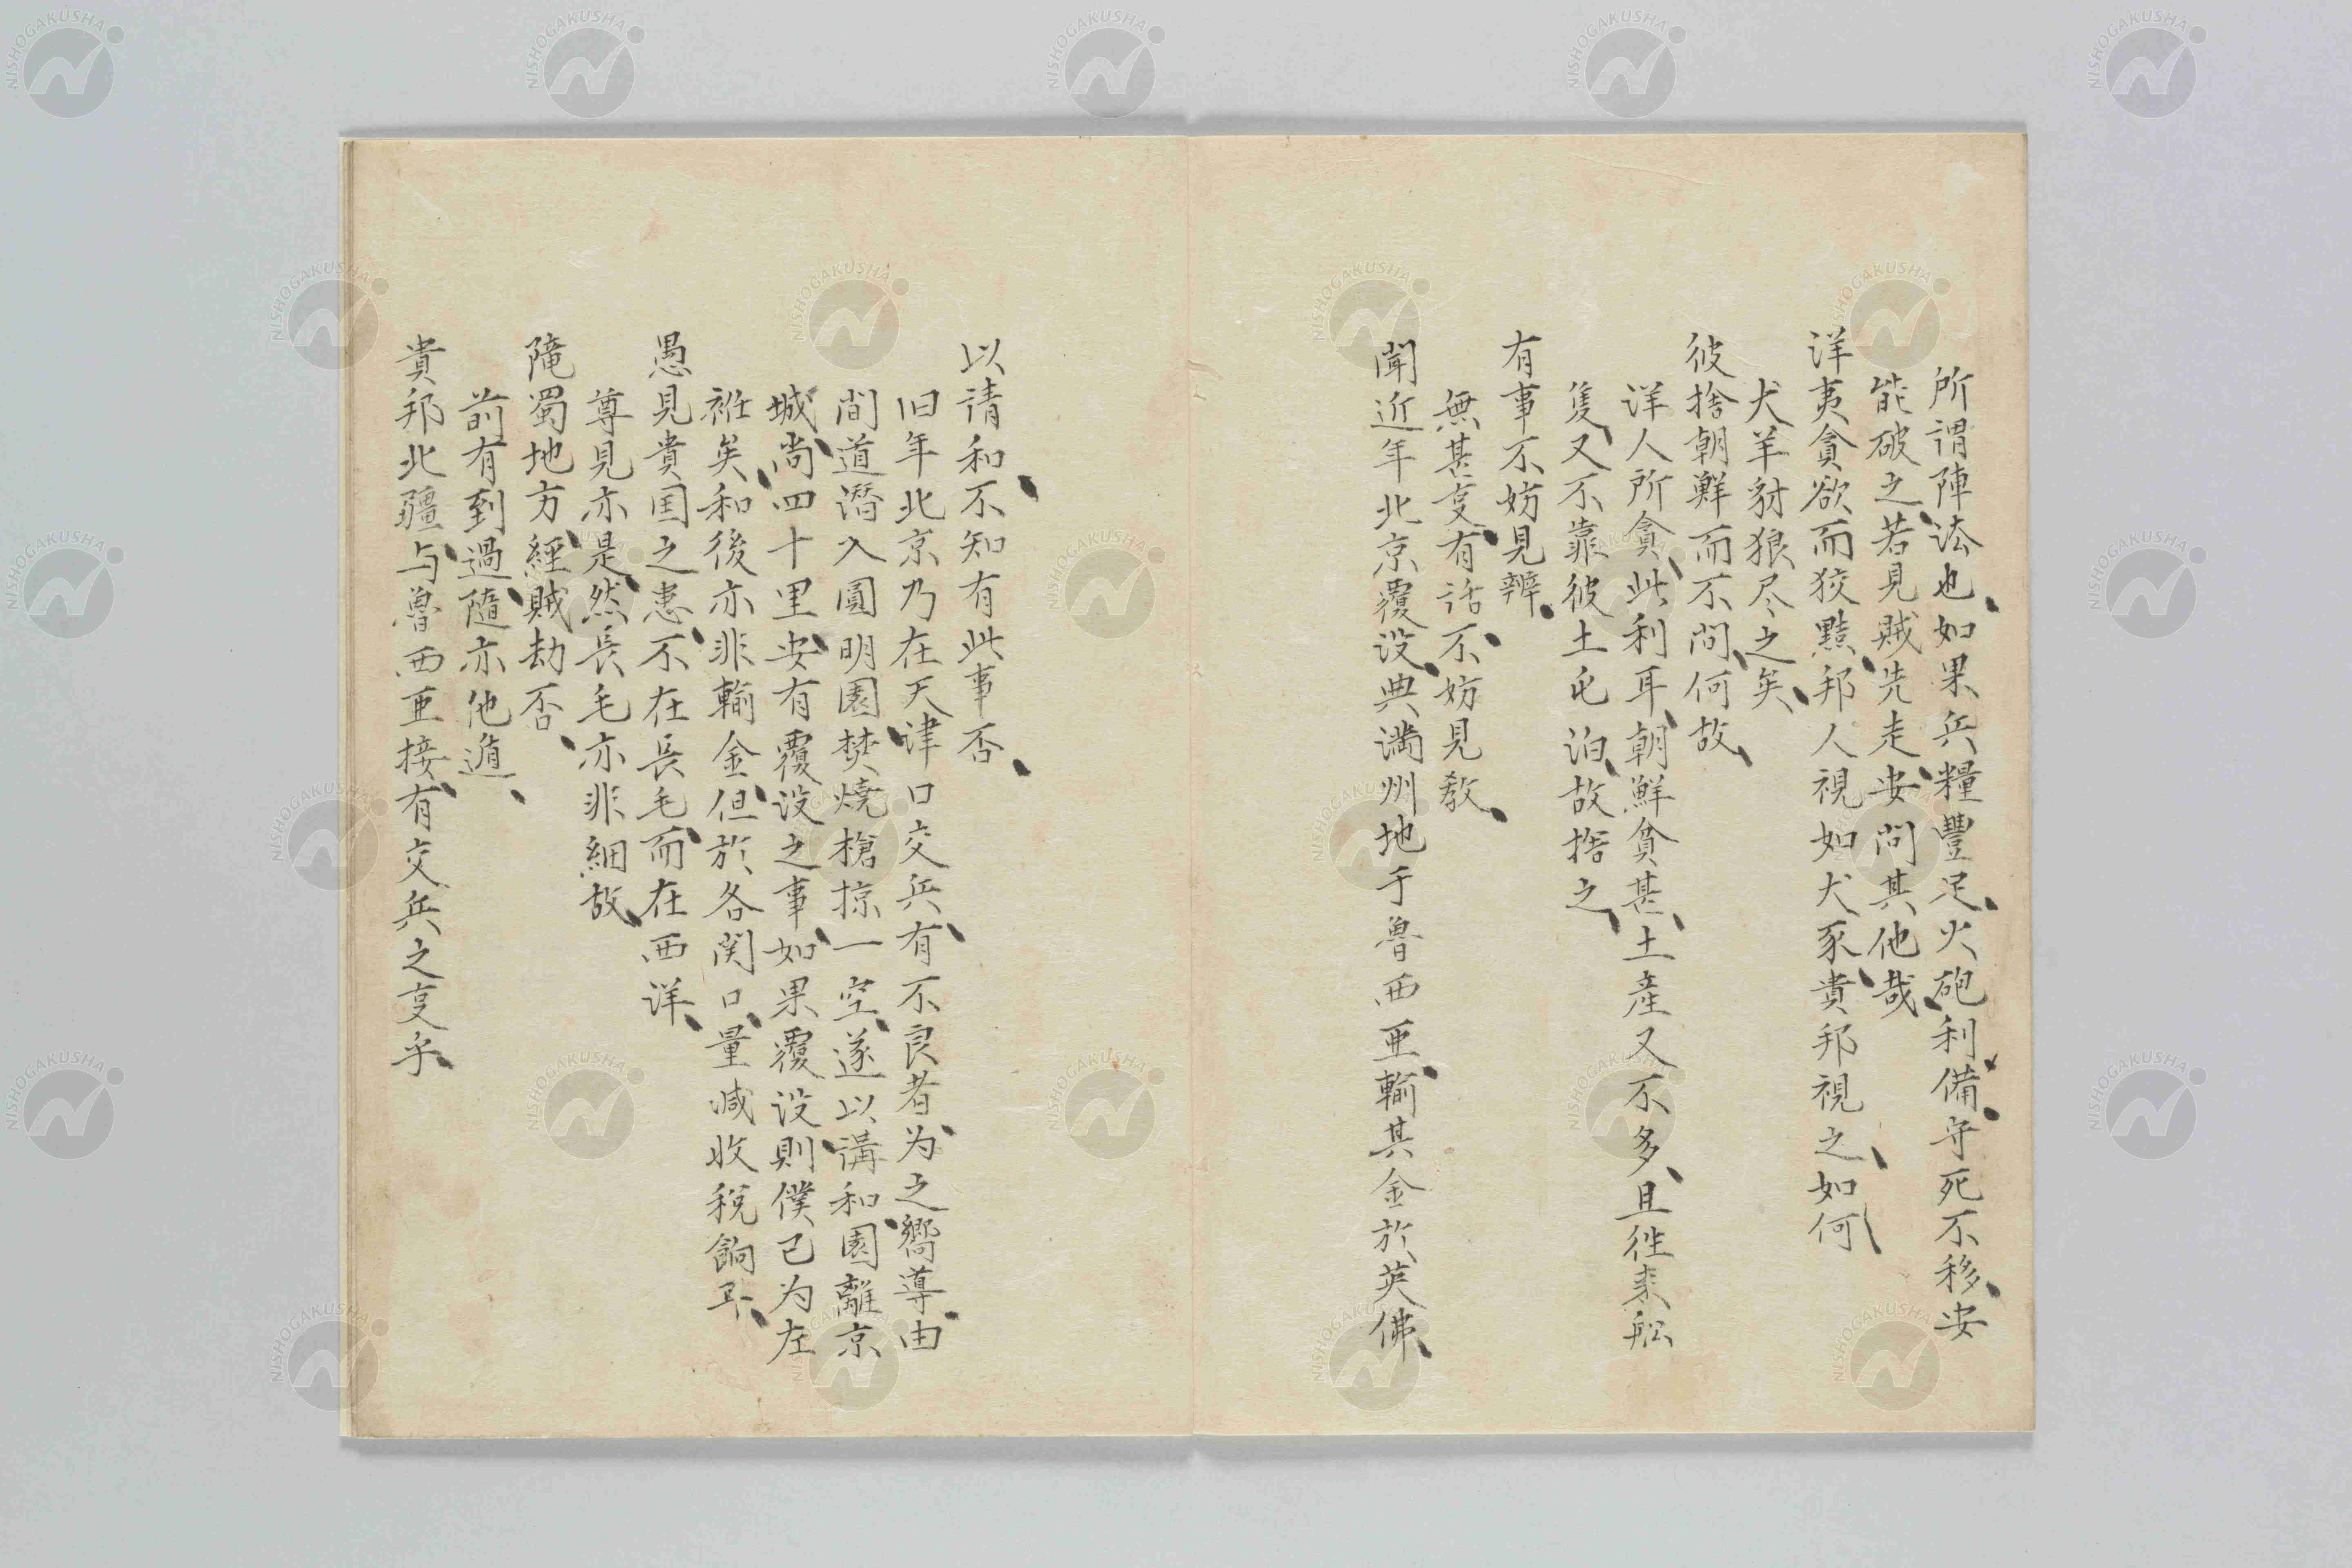 所謂陣法也、如果兵糧豐足、火砲利備、守死不移、安
能破之、若見賊先走、安問其他哉
洋夷貪欲而狡黠、邦人視如犬豕、貴邦視之如何
犬羊豺狼尽之矣、
彼捨朝鮮而不問、何故、
洋人所貪、此利耳、朝鮮貧甚、土産又不多、且往来舩
隻、又不靠彼土屯泊、故捨之、
有事不妨見辨、
無甚事、有話、不妨見教、
聞近年北京覆没、典満州地于魯西亜、輸其金於英佛、
以請和、不知有此事否、
旧年北京乃在天津口交兵、有不良者、为之嚮導、由
間道潜入圓明園、焚燒槍掠一空、遂以講和、園離京
城、尚四十里、安有覆没之事、如果覆没、則僕已为左
袵矣、和後亦非輸金、但於各関口、量减收税餉耳、
愚見貴国之患、不在長毛、而在西洋、
尊見亦是、然長毛亦非細故、
陸蜀地方、經賊劫否、
前有到過、隨亦他遁、
貴邦北疆、与魯西亜接、有交兵之事乎、
NISHOGAKUSHA